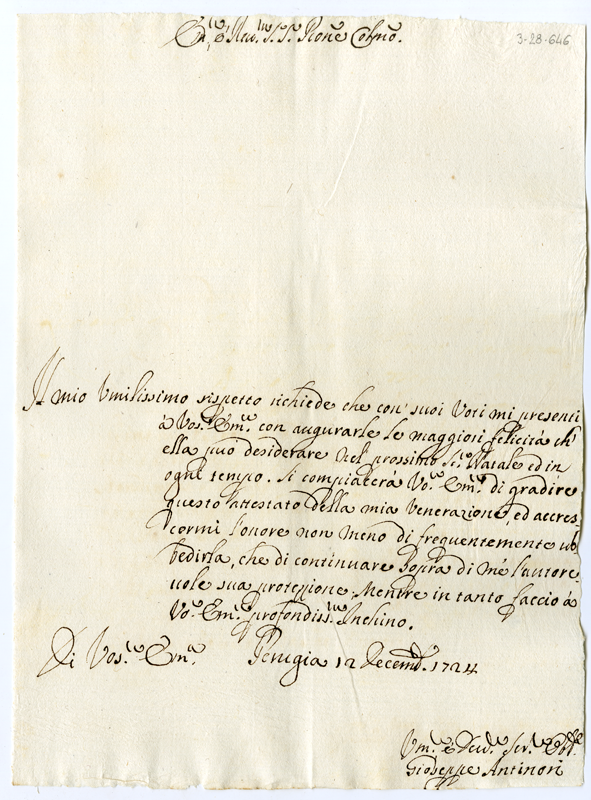 Em.mo e Rev.mo S.r S.r Pron̄e Colmō.
3-28-646
Il mio Umilissimo rispetto richiede che con' suoi Voti mi presenti
à Vos.a Em.a con augurarle le maggiori felicità ch'
ella può desiderare nel prossimo S.mo Natale ed in
ogni tempo. Si compiacerà Vo.a Em.a di gradire
questo attestato della mia Venerazione, ed accres-
cormi l'onore non meno di frequentemente ub
bedirla, che di continuare sopra di mè l'autore
uole sua protezione, Mentre in tanto faccio à
Vo.a Em.a profondiss.mo Inchino.
Di Vos.a Em.a Perugia 12 Decemb. 1724
Um.mo e Dev.mo Ser.re Obb.
Gioseppe Antinori